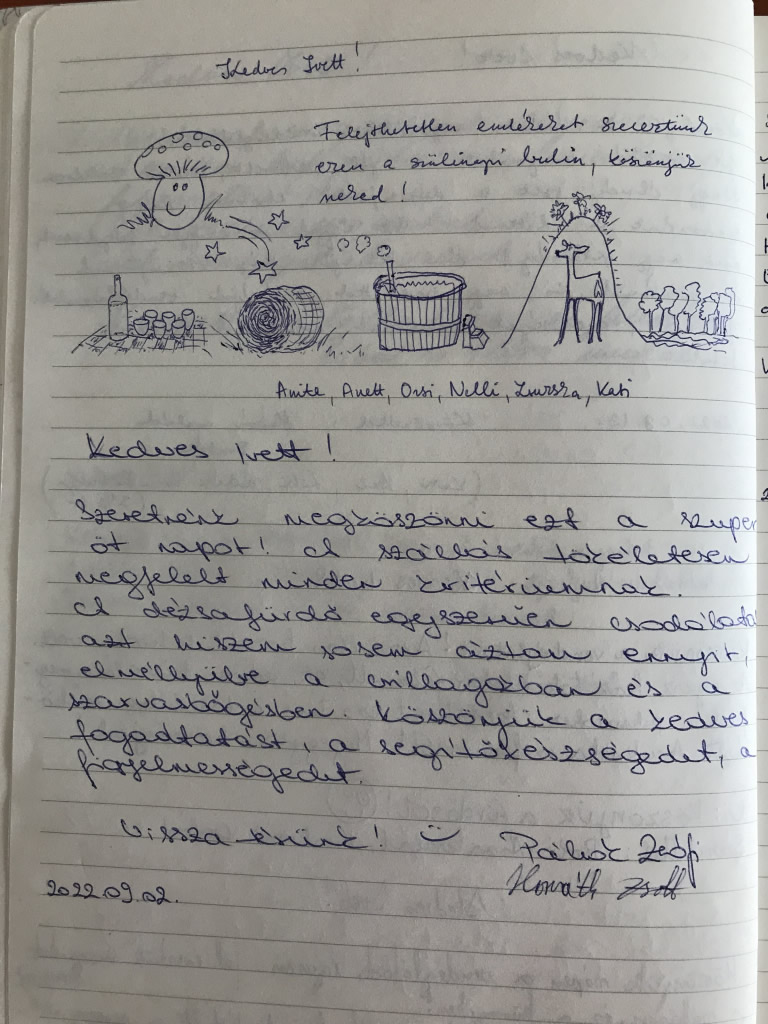 Kedves Ivett!
Felejthetetlen emlékeket szereztünk
ezen a szülinapi bulin, köszönjük
neked!
Anita, Anett, Orsi, Nelli, Zsuzska, Kati
Kedves Ivett!
Szeretnénk megköszönni ezt a szuper
öt napot! A szállás tökéletesen
megfelelt minden kritériumnak.
A dézsafürdő egyszerűen csodálato
azt hiszem sosem áztam ennyit,
elmélyülve a csillagokban és a
szarvasbőgésben. Köszönjük a kedves
fogadtatást, a segítőkészségedet, a
figyelmességedet.
Vissza térünk!
Zsófi
Horváth Zsolt
2022.09.02.